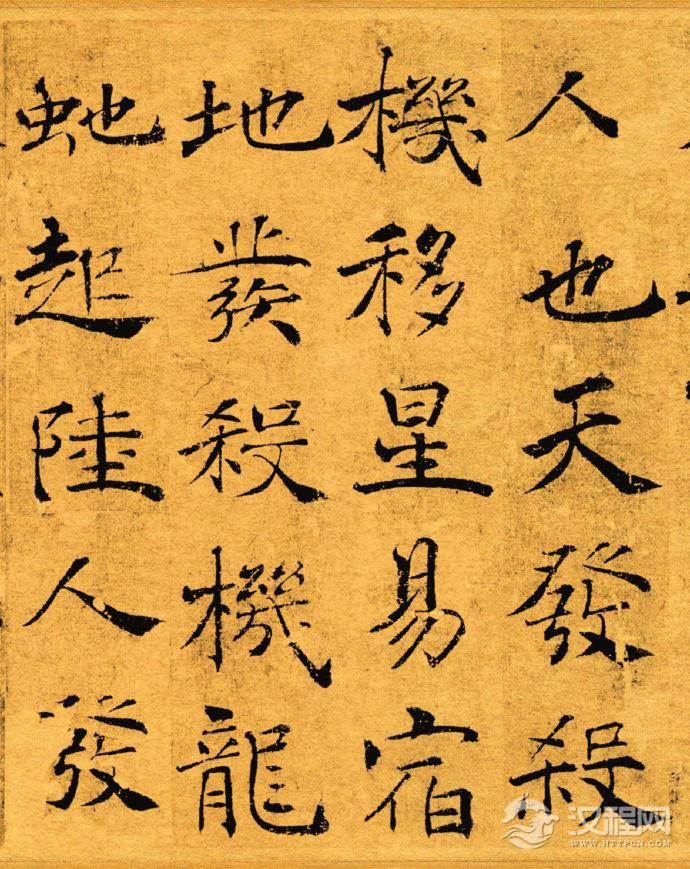 人也天發殺
機移星易宿
地發殺機龍
虵起陸人發
汉程网
WWW.HTTPCN.COM